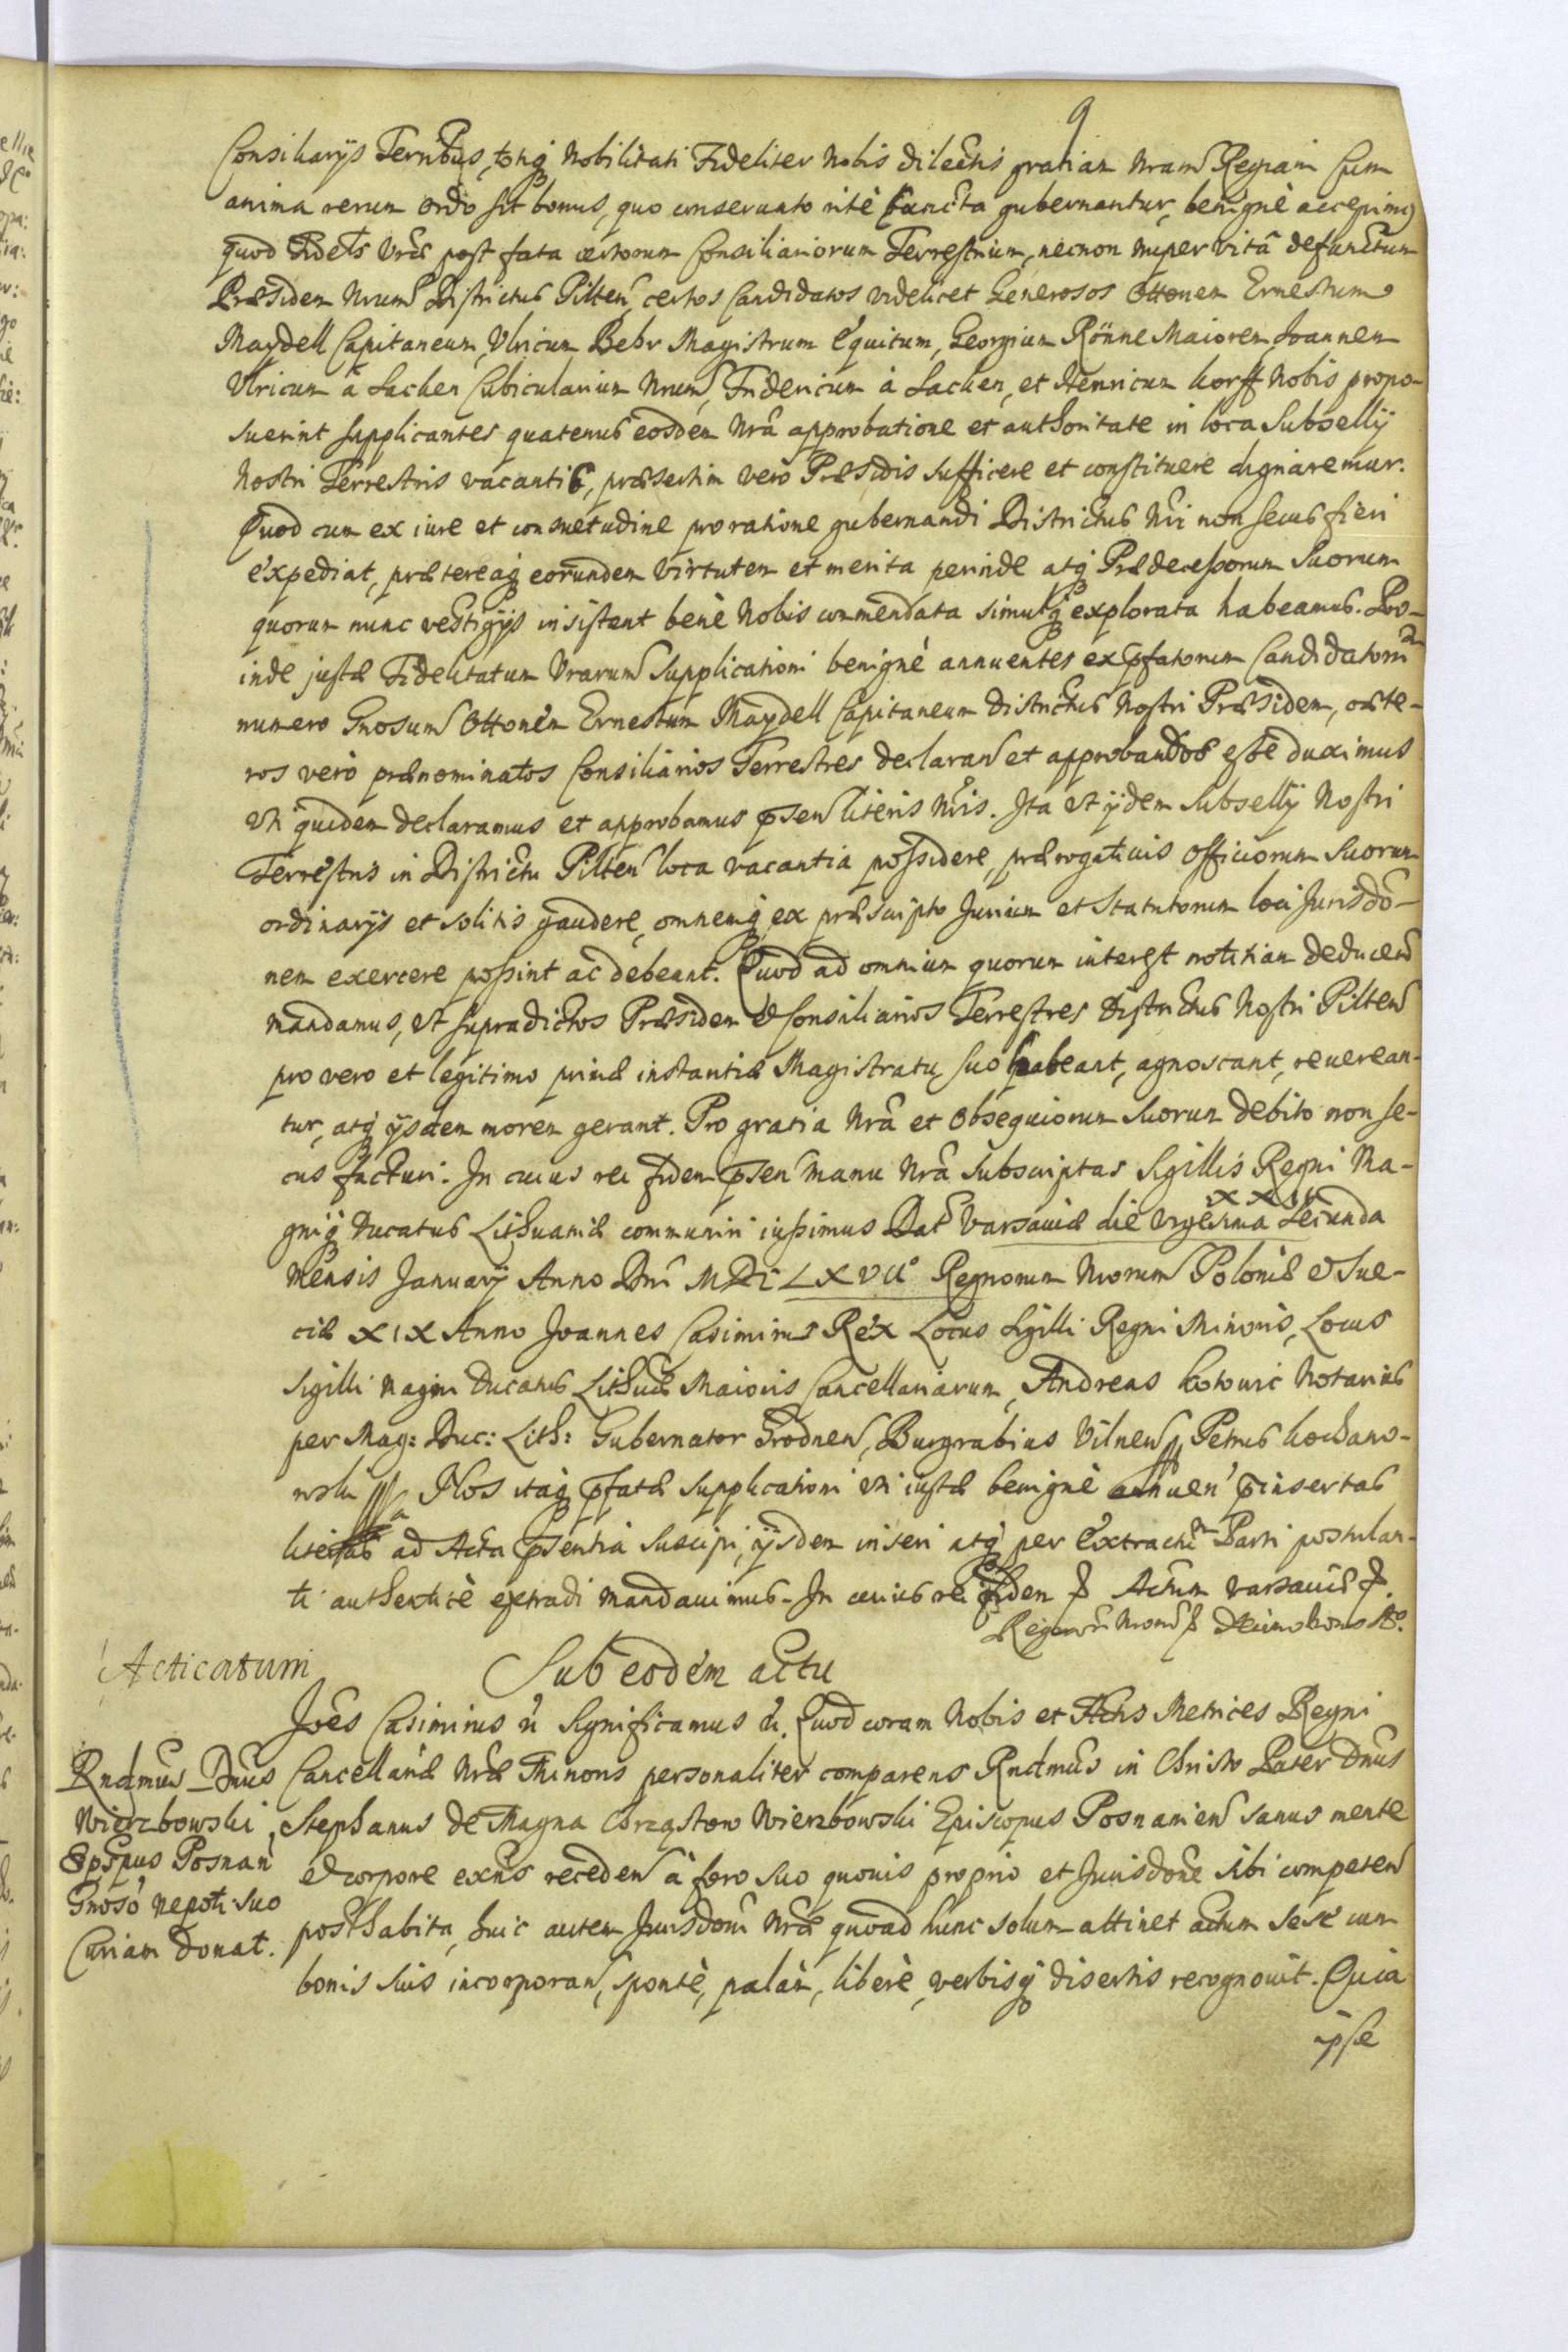 9
Consiliarijs Terribus, totiq Nobilitati Fideliter Nobis dilectis gratiam Nram Regiam Cum
anima rerum ordo sit bonus, quo conservato ritè cuncta gubernantur, benignè accepimus
quod Fidets Vrae post fata certorum Consiliariorum Terrestrium, necnon nuper vitâ defunctum
Praesidem Nrum Districtus Pilten certos Candidatos videlicet Generosos Ottonem Ernestum
Maydell Capitaneum, Ulricum Behr Magistrum Equitum, Georgium Rönne Maiorem, Joannem
Ulricum à Sacken Cubicularium Nrum, Fridericum à Sacken, et Henricum Korff Nobis propo-
suerint supplicantes quatenus eosdem Nrâ approbatione et authoritate in loca Subsellij
Nostri Terrestris vacantia, praesertim vero Praesidis sufficere et constituere dignaremur.
Quod cum ex iure et consuetudine pro ratione gubernandi Districtus Nri non secus fieri
expediat, praetereaq eorundem virtutem et merita perinde atq Praedecessorum Suorum
quorum nunc vestigijs insistent benè Nobis commendata simulq explorata habeamus. Pro-
inde justae Fidelitatum Vrarum Supplicationi benignè annuentes ex pfatorum Candidatorum
numero Gnosum Ottonem Ernestum Maydell Capitaneum Districtus Nostri Praesidem, caete-
ros verò praenominatos Consiliarios Terrestres declaran et approbandos esse duximus
uti quidem declaramus et approbamus psen literis Nris. Ita ut ijdem Subsellij Nostri
Terrestris in Districtu Pilten loca vacantia possidere, praerogativis Officiorum Suorum
ordinarijs et solitis gaudere, omnemq ex praescripto Jurium et Statutorum loci Jurisdo-
nem exercere possint ac debeant. Quod ad omnium quorum interest notitiam deducen
mandamus, ut supradictos Praesidem et Consiliarios Terrestres Districtus Nostri Pilten
pro vero et legitimo primae instantiae Magistratu suo habeant, agnoscant, reverean-
tur, atq ijsdem morem gerant. Pro gratia Nrâ et Obsequiorum Suorum debito non se-
cus facturi. In cuius rei fidem psen manu Nrâ subscriptas Sigillis Regni Ma-
XXII
gniq Ducatus Lithuaniae communiri iussimus Dat Varsaviae die vigesima secunda
Mensis Januarij Anno Dni MDCLXVII Regnorum Nrorum Poloniae et Sue-
ciae XIX Anno Joannes Casimirus Rex Locus Sigilli Regni Minoris, Locus
Sigilli Magni Ducatus Lithuae Maioris Cancellariarum, Andreas Kotowic Notarius
per Mag: Duc: Lith: Gubernator Grodnen, Burgrabius Vilnen Petrus Kochano-
wski Nos itaq pfatae supplicationi uti iustae benignè annuen pinsertas
literas ad Acta psentia suscipi, ijsdem inseri atq per Extractum Parti postulan-
ti authenticè extradi mandavimus. In cuius rei fidem Actum Varsaviae
Regnorum Nrorum Decimo Nono Ao.
Acticatum
Sub eodem actu
Joes Casimirus Significamus Quod coram Nobis et Actis Metrices Regni
Rndmus Dnus
Wierzbowski,
Epspus Posnan
Gnoso Nepoti suo
Curiam Donat.
Cancellariae Nrae Minoris personaliter comparens Rndmus in Christo Pater Dnus
Stephanus de Magna Chrząstow Wierzbowski Episcopus Posnanien sanus mente
et corpore exns receden à foro suo quovis proprio et Jurisdone sibi competen
posthabita, huic autem Jurisdoni Nrae quoad hunc solum attinet actum sese cum
bonis suis incorporan, spontè, palàm, liberè, verbisq disertis recognovit. Quia
ipse